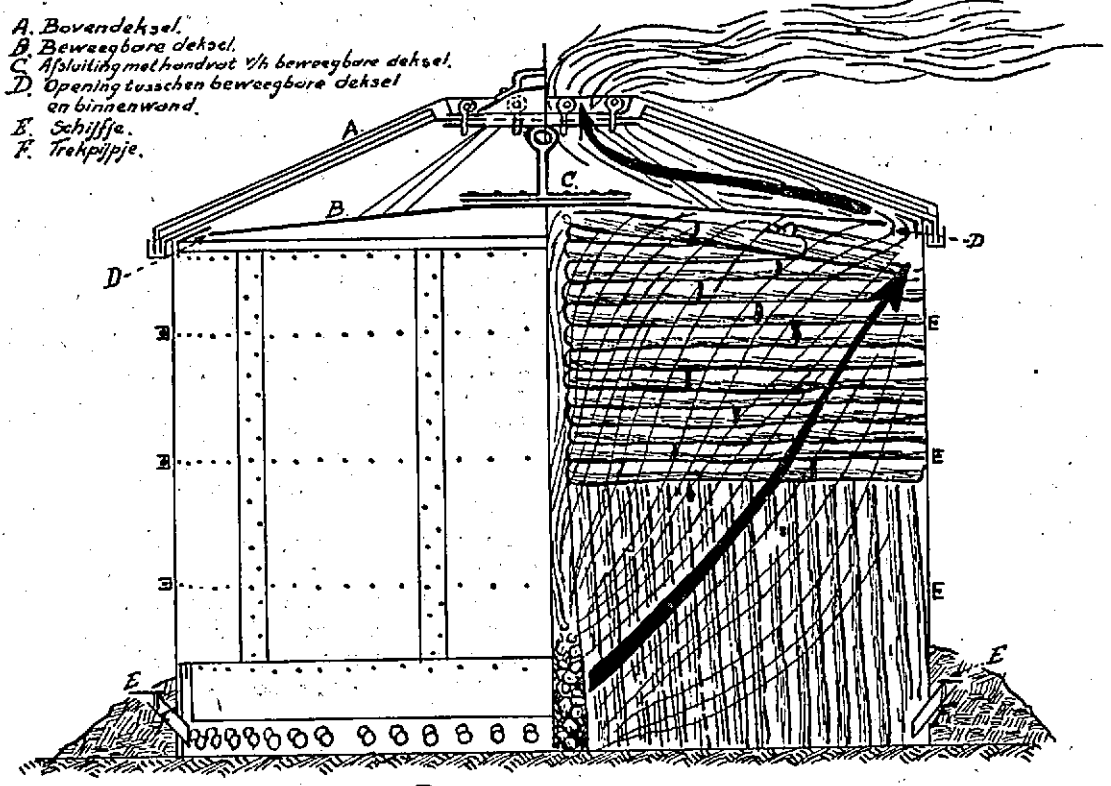 A. Bovendeksel.
B. Beweegbare deksel.
C. Afsluiting met handvat v/h beweegbare deksel.
D. Opening tusschen beweegbare deksel
en binnenwand.
E. Schiffje.
F. Trekpijpje.
A.
C.
B.
D
D
E
E
E
E
E
E
E
E